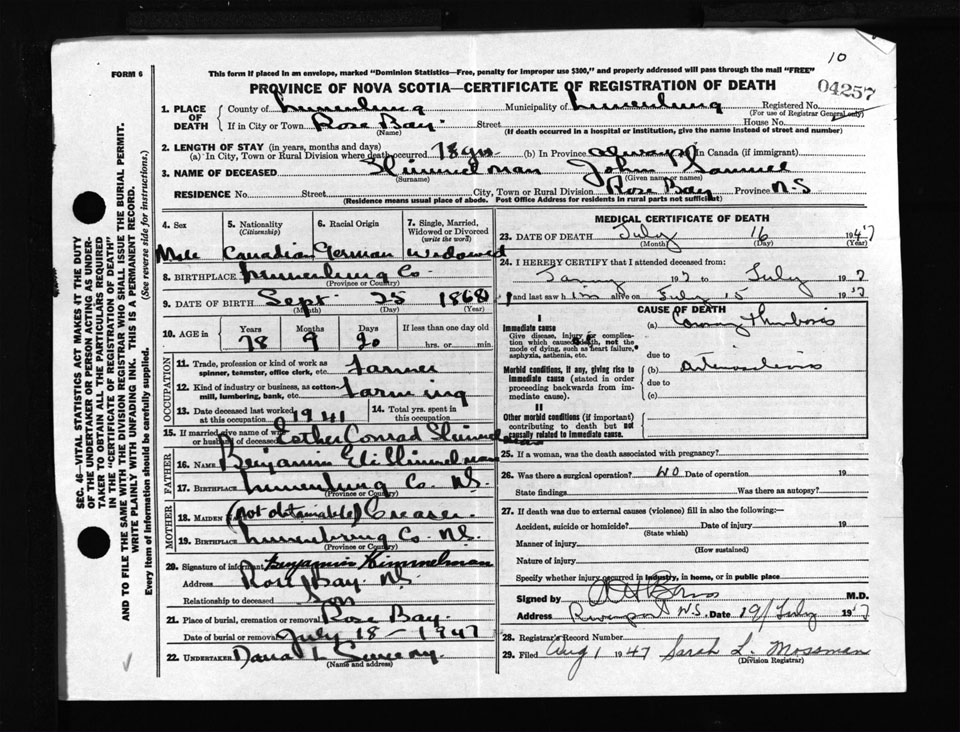 10
FORM 6
This form if placed in an envelope, marked "Dominion Statistics—Free, penalty for improper use $300," and properly addressed will pass through the mail "FREE"
PROVINCE OF NOVA SCOTIA—CERTIFICATE OF REGISTRATION OF DEATH
04257
1. PLACE OF DEATH County of Lunenburg Municipality of Lunenburg Registered No.
(For use of Registrar General only)
If in City or Town Rose Bay. Street House No.
(Name) (If death occurred in a hospital or institution, give the name instead of street and number)
2. LENGTH OF STAY (in years, months and days)
(a) In City, Town or Rural Division where death occurred 78 yrs. (b) In Province always In Canada (if immigrant)
3. NAME OF DECEASED Himmelman John Samuel
(Surname) (Given name or names)
RESIDENCE No. Street City, Town or Rural Division Rose Bay Province N.S
(Residence means usual place of abode. Post Office Address for residents in rural parts not sufficient)
4. Sex 5. Nationality (Citizenship) 6. Racial Origin 7. Single, Married, Widowed or Divorced (write the word)
Male Canadian German Widowed
8. BIRTHPLACE Lunenburg Co.
(Province or Country)
9. DATE OF BIRTH Sept 25 1868
(Month) (Day) (Year)
10. AGE in Years Months Days If less than one day old
78 9 20 hrs. or min.
OCCUPATION
11. Trade, profession or kind of work as spinner, teamster, office clerk, etc. Farmer
12. Kind of industry or business, as cotton-mill, lumbering, bank, etc. Farming
13. Date deceased last worked at this occupation 1941 14. Total yrs. spent in this occupation
15. If married give name of wife or husband of deceased Esther Conrad Himmelman
FATHER
16. NAME Benjamin Eli Himmelman
17. BIRTHPLACE Lunenburg Co. N.S.
(Province or Country)
MOTHER
18. MAIDEN (not obtainable) Creaser
19. BIRTHPLACE Lunenburg Co. N.S.
(Province or Country)
20. Signature of informant Benjamin Himmelman
Address Rose Bay. N.S.
Relationship to deceased Son
21. Place of burial, cremation or removal Rose Bay.
Date of burial or removal July 18 – 1947
22. UNDERTAKER Dana L Sweeny.
(Name and address)
MEDICAL CERTIFICATE OF DEATH
23. DATE OF DEATH July 16 1947
(Month) (Day) (Year)
24. I HEREBY CERTIFY that I attended deceased from:
19 to July 19
I last saw him alive on July 15 19
CAUSE OF DEATH
I
Immediate cause (a) Coronary Thrombosis
Give disease, injury or complication which caused death, not the mode of dying, such as heart failure, asphyxia, asthenia, etc.
due to
Morbid conditions, if any, giving rise to immediate cause (stated in order proceeding backwards from immediate cause).
(b) Arteriosclerosis
due to
(c)
II
Other morbid conditions (if important) contributing to death but not causally related to immediate cause.
25. If a woman, was the death associated with pregnancy?
26. Was there a surgical operation? NO Date of operation 19
State findings Was there an autopsy?
27. If death was due to external causes (violence) fill in also the following:—
Accident, suicide or homicide? Date of injury 19
(State which)
Manner of injury
(How sustained)
Nature of injury
Specify whether injury occurred in industry, in home, or in public place
Signed by M.D.
Address Riverport N.S. Date 19/July 19
28. Registrar's Record Number
29. Filed Aug 1 1947 Sarah L. Mossman
(Division Registrar)
SEC. 46—VITAL STATISTICS ACT MAKES IT THE DUTY
OF THE UNDERTAKER OR PERSON ACTING AS UNDERTAKER TO OBTAIN ALL THE PARTICULARS REQUIRED
IN THE "CERTIFICATE OF REGISTRATION OF DEATH"
AND TO FILE THE SAME WITH THE DIVISION REGISTRAR WHO SHALL ISSUE THE BURIAL PERMIT.
WRITE PLAINLY WITH UNFADING INK. THIS IS A PERMANENT RECORD.
Every item of information should be carefully supplied. (See reverse side for instructions.)